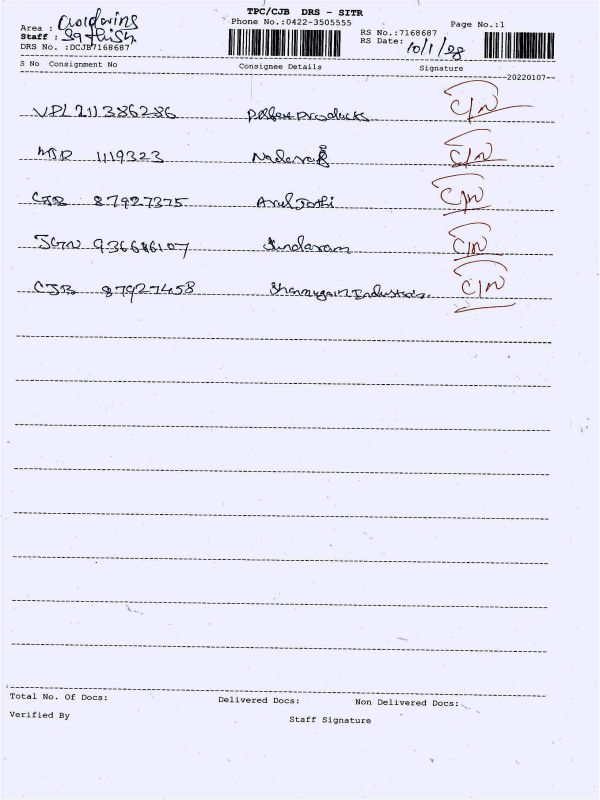 TPC/CJB DRS - SITR
Area : Goldwins Phone No.:0422-3505555 Page No.:1
Staff : Sathish RS No.:7168687
DRS No. :DCJB7168687 RS Date: 10/1/
S No Consignment No Consignee Details Signature
20220107
VPL 211386286 Products C/N
1119323 Nadaraj C/N
CJB 87927375 Arul Jothi C/N
936686107 Sundaram C/N
CJB 87927458 Shanmugam Industries. C/N
Total No. Of Docs: Delivered Docs: Non Delivered Docs:
Verified By Staff Signature